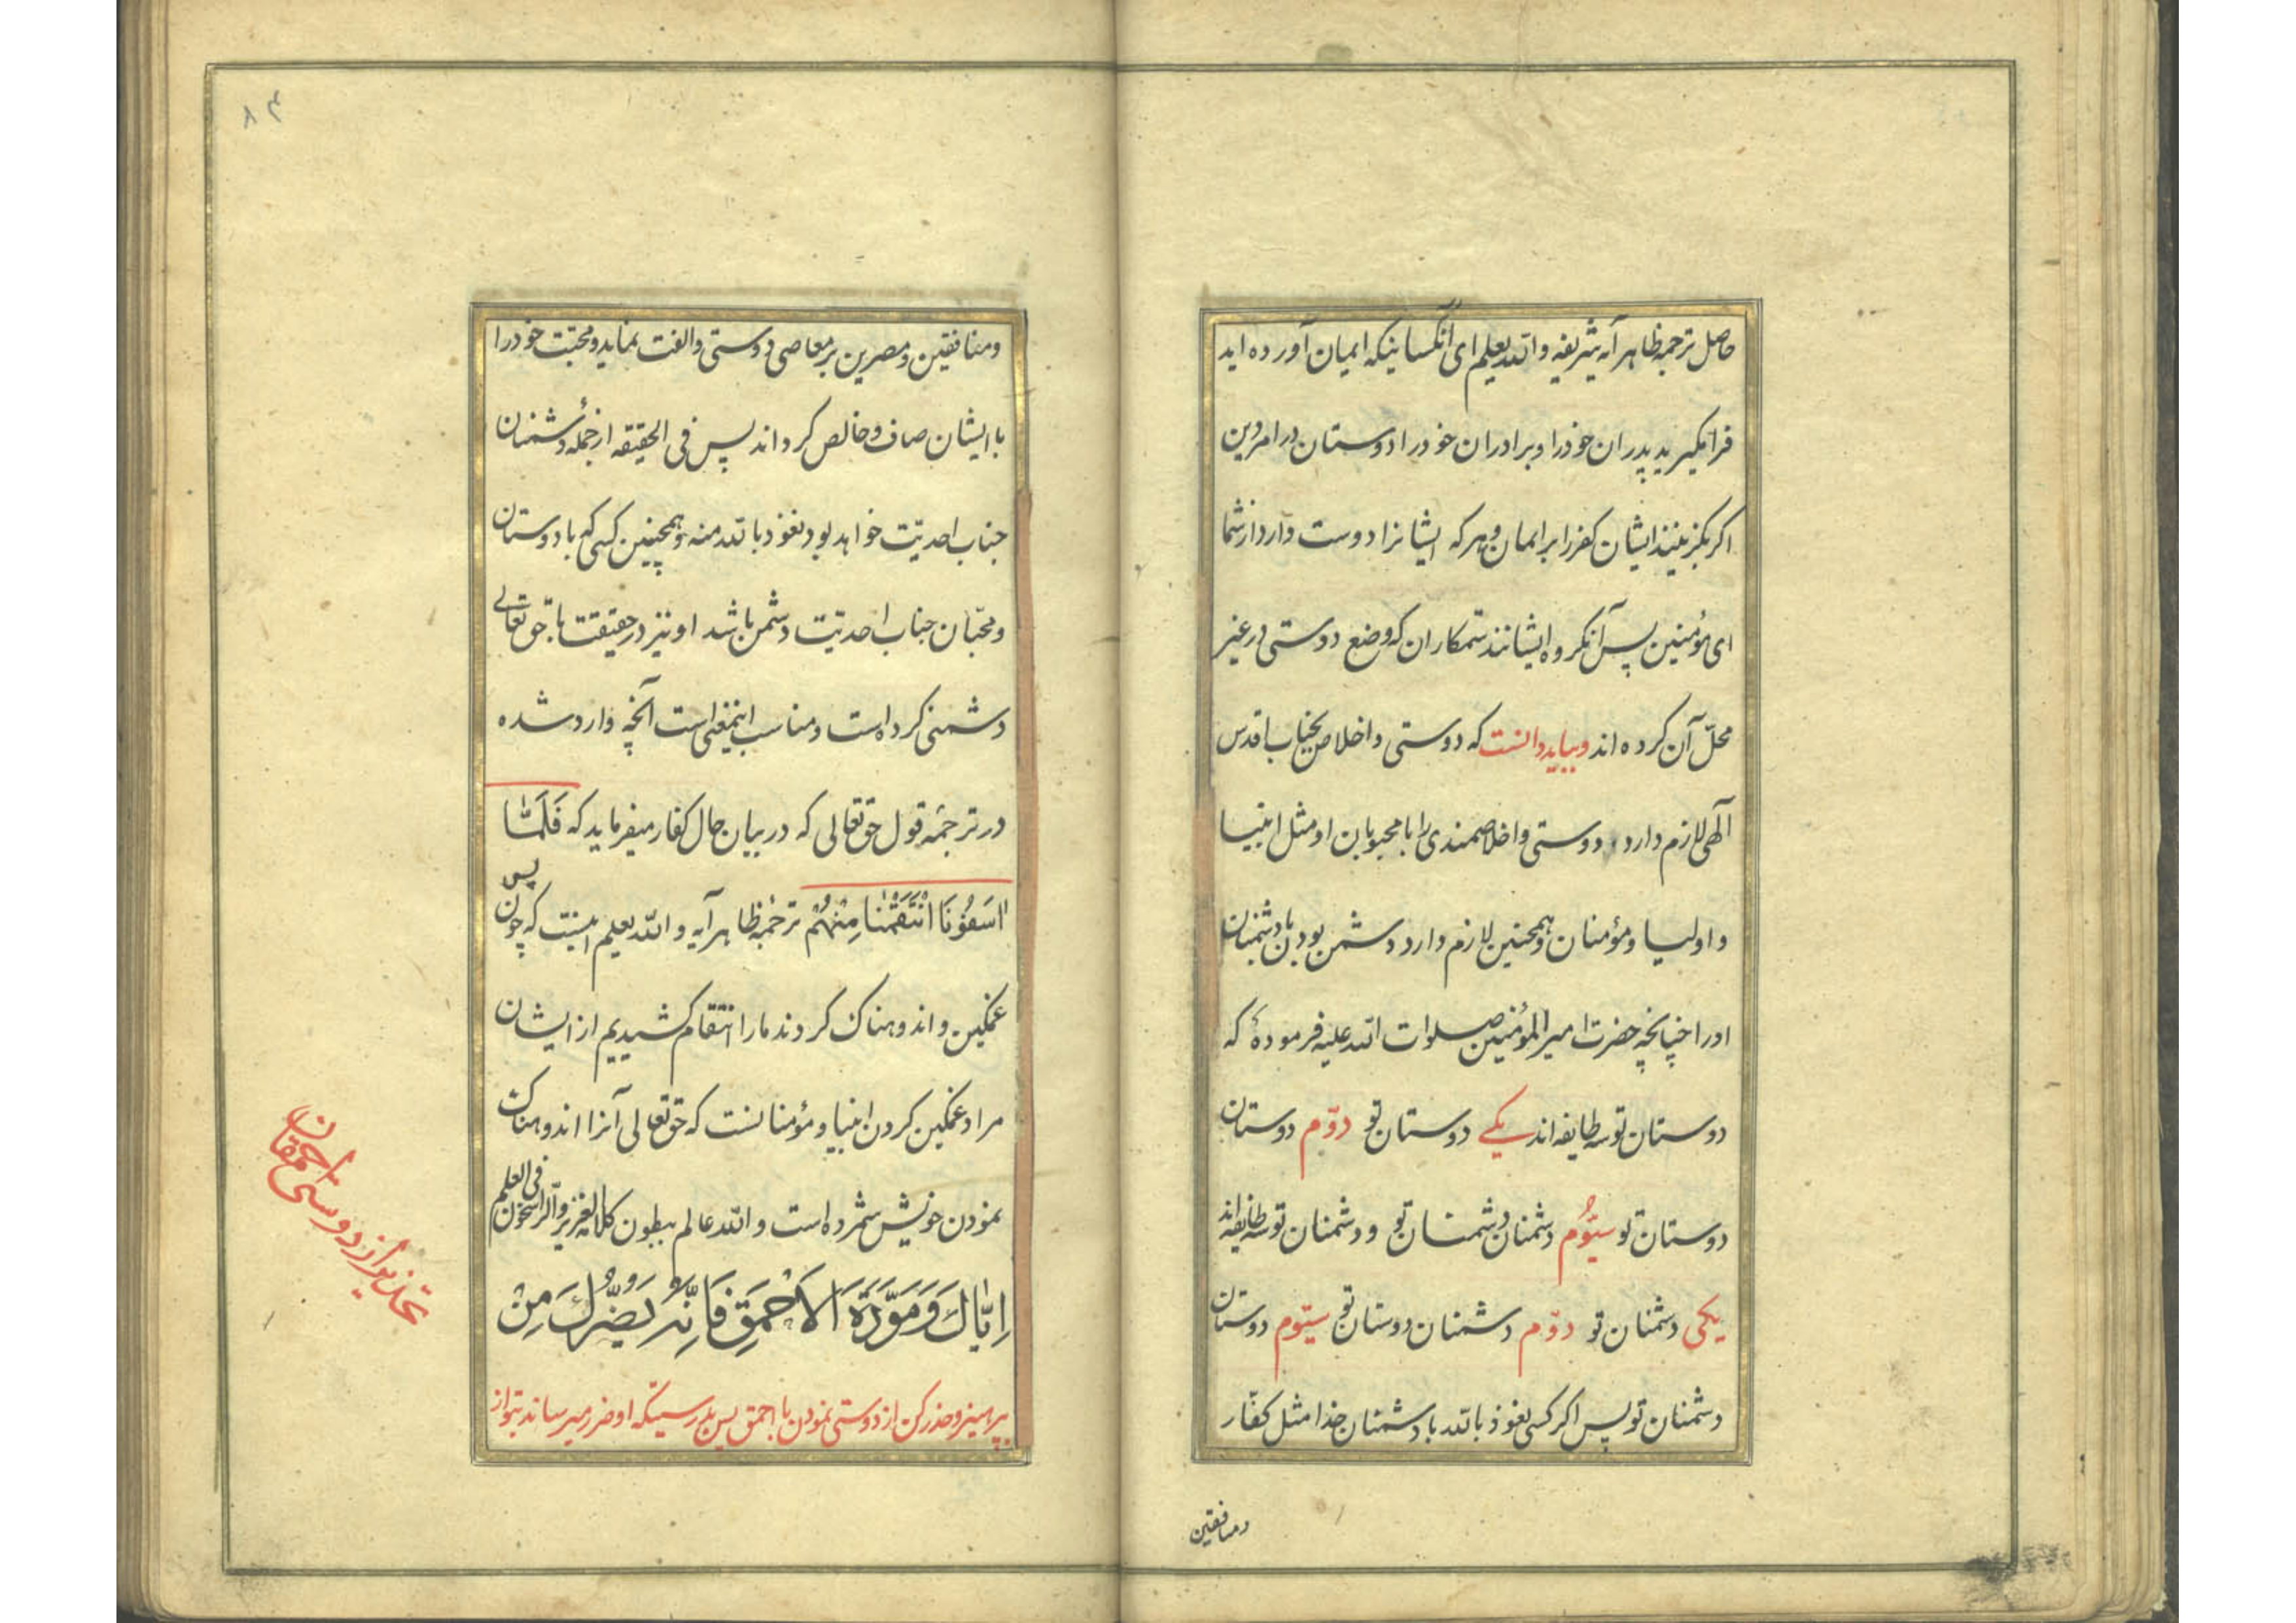 حاصل ترجمهٔ ظاهر آیه شریفه والله یعلم ای آنکسانیکه ایمان آورده اید
فرا مکیرید پدران خود را و برادران خود را دوستان در امر دین
اکر بکزینند ایشان کفر را بر ایمان و هرکه ایشانرا دوست دارد از شما
ای مؤمنین پس آنکروه ایشانند ستمکاران که وضع دوستی در غیر
محلّ آن کرده اند و بباید دانست که دوستی و اخلاص بجناب اقدس
الٓهی لازم دارد دوستی و اخلاصمندی را با محبوبان او مثل انبیا
و اولیا و مؤمنان و همچنین لازم دارد دشمن بودن با دشمنان
او را چنانچه حضرت امیر المؤمنین صلوات الله علیه فرموده که
دوستان تو سه طایفه اند یکی دوستان تو دوّم دوستان
دوستان تو سیّوُم دشمنان دشمنان تو و دشمنان تو سه طایفه اند
یکی دشمنان تو دوّم دشمنان دوستان تو سیّوم دوستان
دشمنان تو پس اکر کسی نعوذ بالله با دشمنان خدا مثل کفّار
ومنافقین
۸۴
ومنافقین و مصرین بر معاصی دوستی و الفت نماید و محبّت خود را
با ایشان صاف و خالص کرداند پس فی الحقیقه از جملهٔ دشمنان
جناب احدیّت خواهد بود نعوذ بالله منه و همچنین کسی که با دوستان
و محبّان جناب احدیّت دشمن باشد او نیز در حقیقت با حق تعالی
دشمنی کرده است و مناسب اینمعنی است آنچه وارد شده
در ترجمهٔ قول حق تعالی که در بیان حال کفار میفرماید که فَلَمّٰا
اٰسَفُونَا انْتَقَمْنٰا مِنْهُمْ ترجمهٔ ظاهر آیه و الله یعلم اینست که پس چون
غمکین و اندوهناک کردند ما را انتقام کشیدیم از ایشان
مراد غمکین کردن انبیا و مؤمنانست که حق تعالی آنرا اندوهناک
نمودن خویش شمرده است و الله عالم ببطون کلامه العزیز و الراسخون فی العلم
اِیّٰاكَ وَمَوَدَّةَ الاَحْمَقِ فَاِنَّهُ یَضُرُّكَ مِنْ
بپرهیز و حذر کن از دوستی نمودن با احمق پس بدرستیکه او ضرر میرساند بتو از
تحذیر از دوستی احمقان